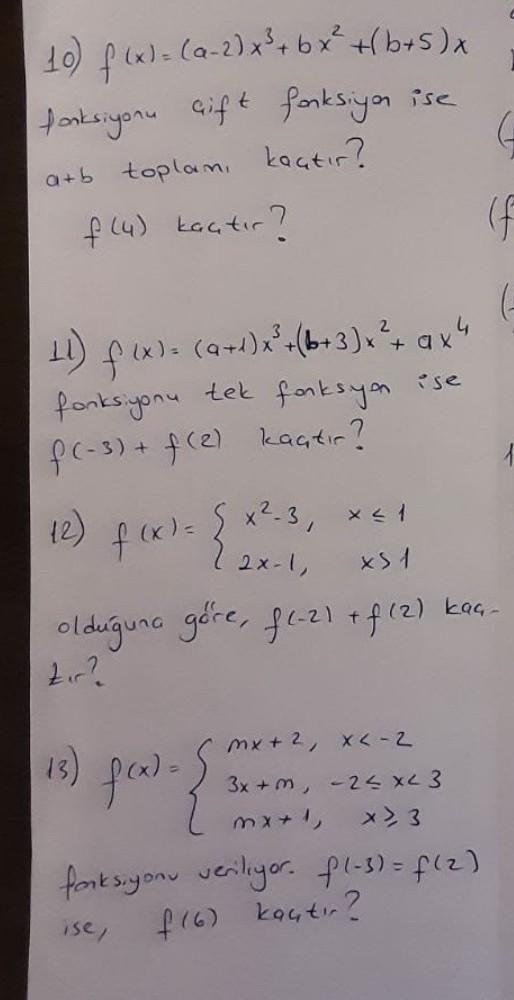 10) f(x)=(a-2)x³+bx²+(b+5)x
fonksiyonu çift fonksiyon ise
a+b toplamı kaçtır?
f(4) kaçtır?
11) f(x)=(a+1)x³+(b+3)x²+ax⁴
fonksiyonu tek fonksiyon ise
f(-3)+f(2) kaçtır?
12) f(x)= { x²-3, x≤1
2x-1, x>1
olduğuna göre, f(-2)+f(2) kaç-
tır?
13) f(x)= { mx+2, x<-2
3x+m, -2≤x<3
mx+1, x≥3
fonksiyonu veriliyor. f(-3)=f(2)
ise, f(6) kaçtır?